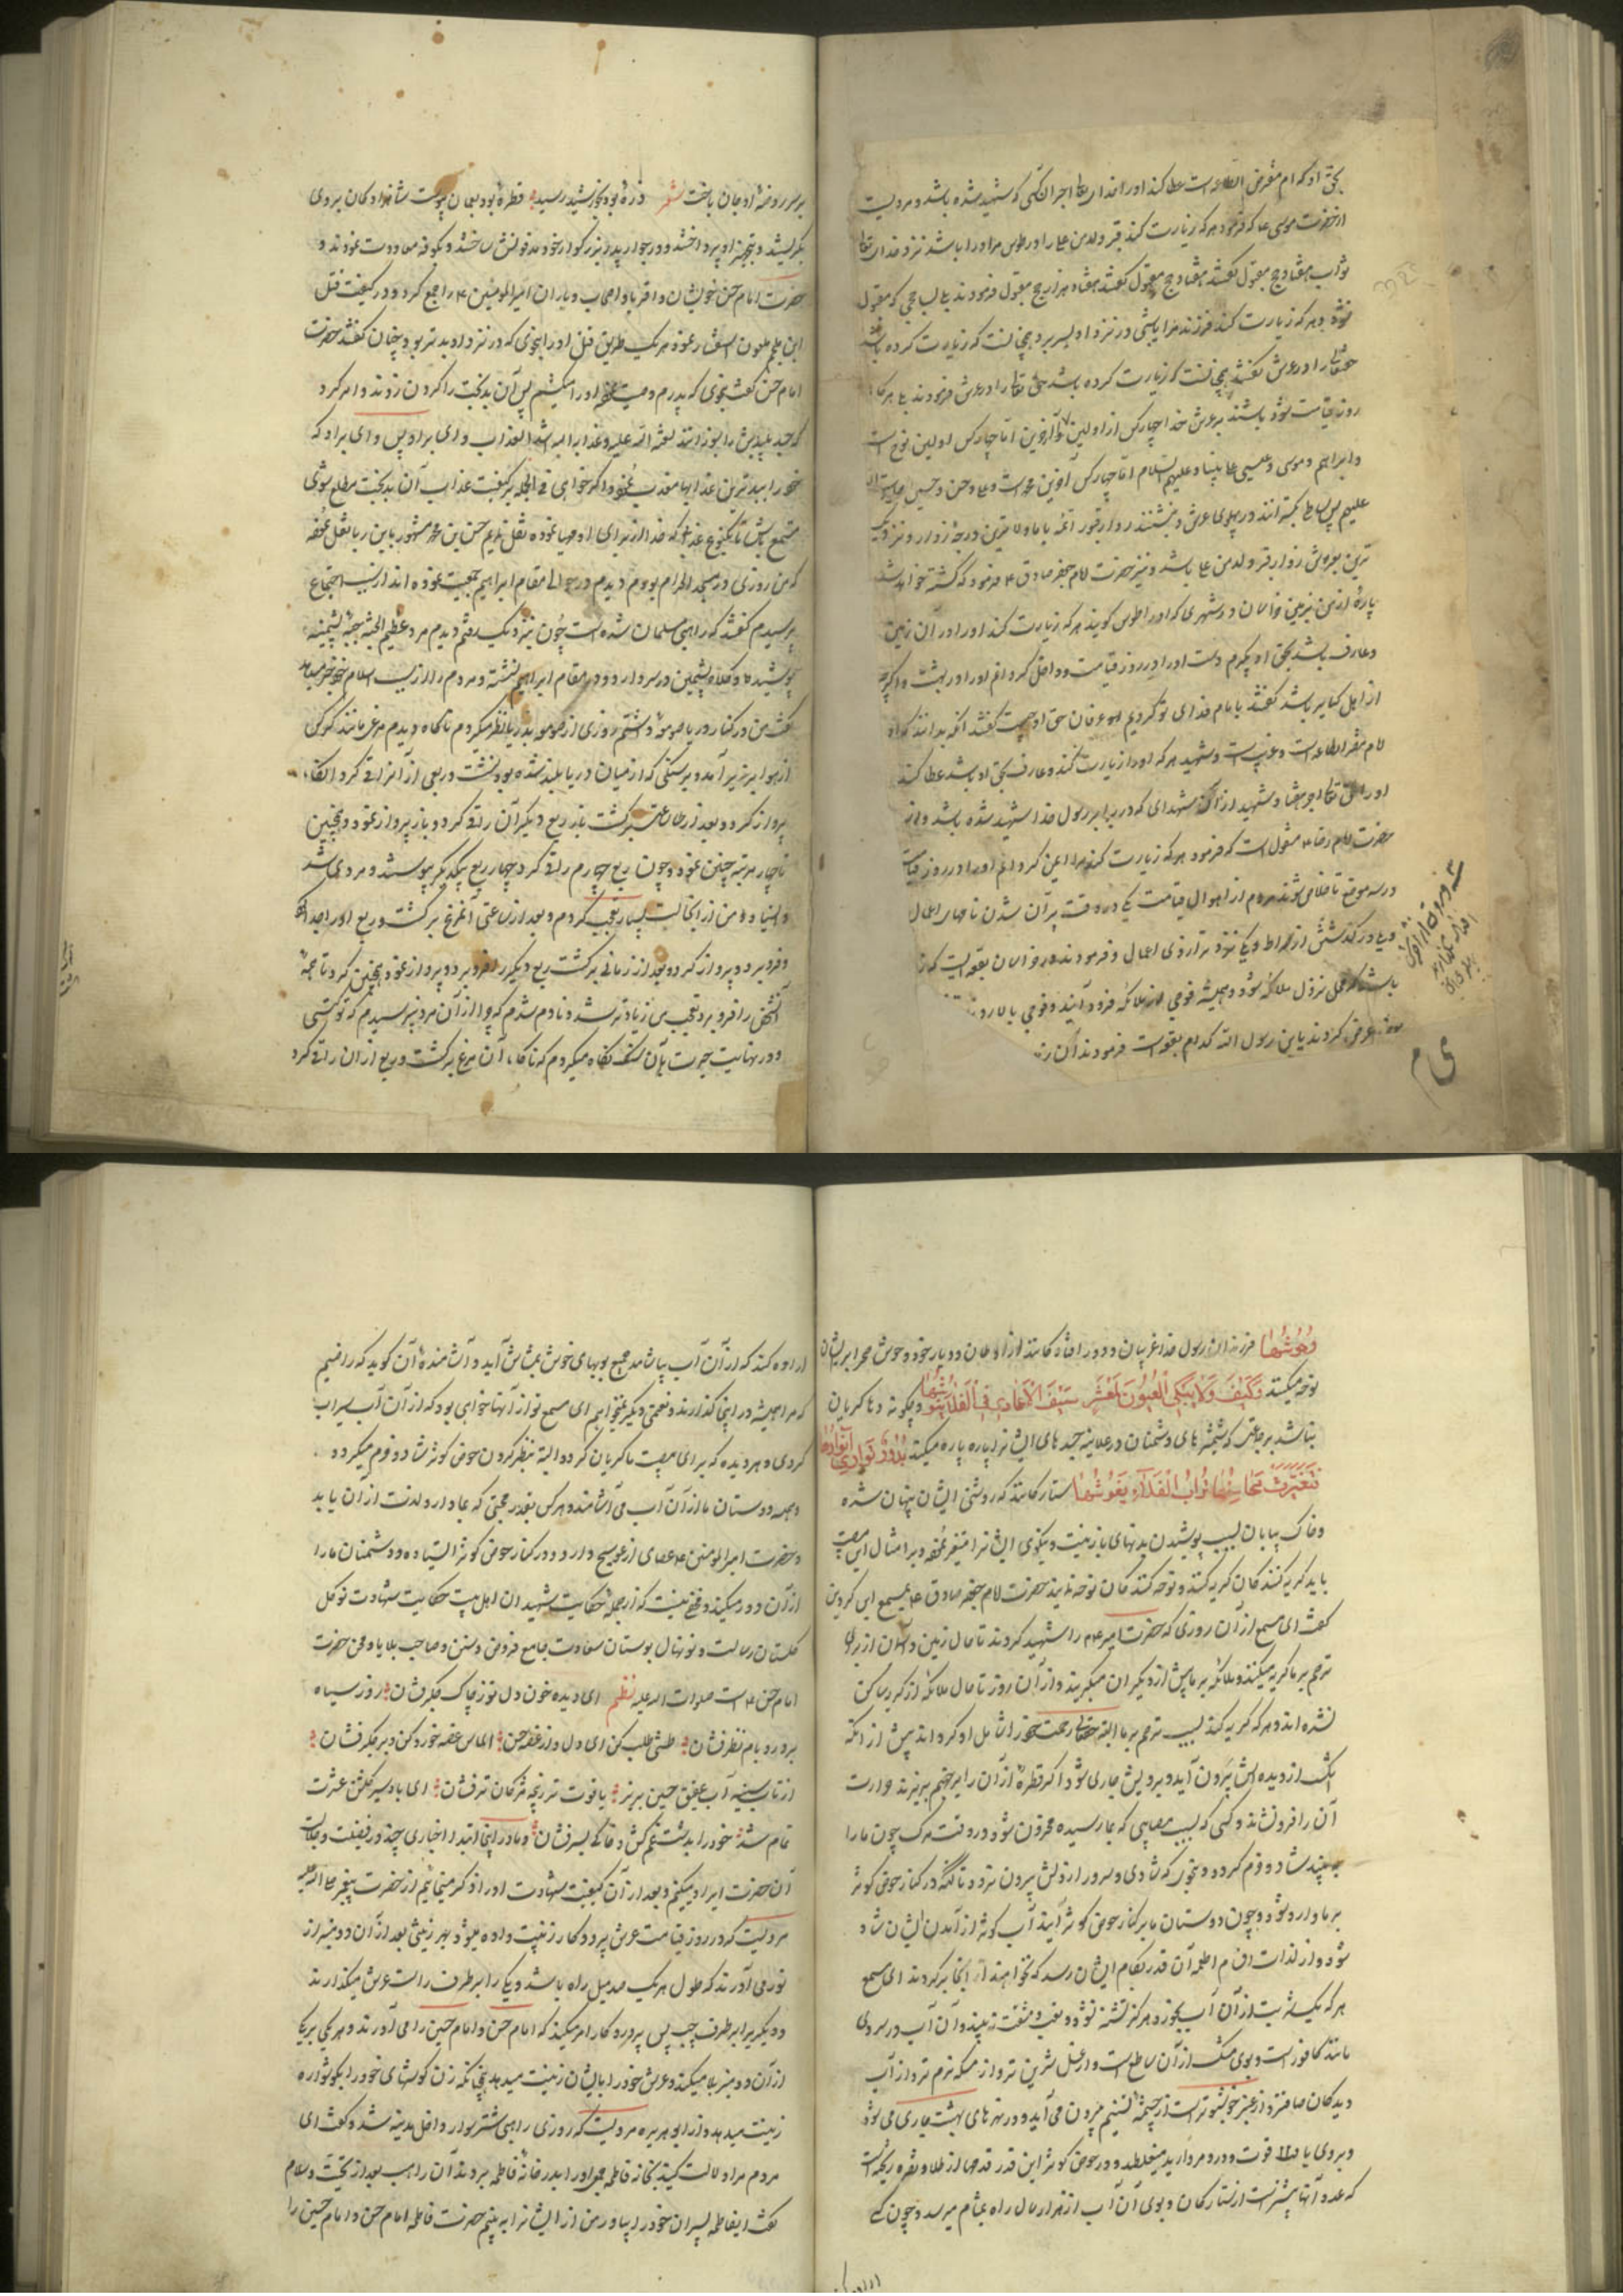 بحق او که ام مفرض الطاعه است عطا کند او را خدای تعالی اجر آن کسی که شهید شده باشد و مرویست
از حضرت موسی ع که فرمود هر که زیارت کند قبر ولد من علی را در طوس مر او را باشد نزد خدای تعالی
ثواب هفتاد حج مقبول گفتند هفتاد حج مقبول گفت هفتاد هزار حج مقبول فرمودند بلی بسا حجی که مقبول
نشود و هر که زیارت کند فرزند مرا یا شبی در نزد او بسر برد همچنانست که زیارت کرده باشد
حقتعالی را در عرش گفتند همچنانست که زیارت کرده باشد حق تعالی را در عرش فرمودند بلی هر گاه
روز قیامت شود باشند بر عرش خدا چهار کس از اولین و آخرین اما چهار کس اولین نوح است
و ابراهیم و موسی و عیسی علی نبینا و علیهم السلام اما چهار کس آخرین محمد است و علی و حسن و حسین
علیهم پس بساطی بکسترانند در پهلوی عرش و بنشینند زوار قبور ائمه با ما و بالاترین درجه زوار و نزدیک
ترین بعرش زوار قبر ولد من علی باشد و نیز حضرت امام جعفر صادق ع فرمود که کشته خواهد شد
پاره از من بزمین خراسان در شهری که او را طوس کویند هر که زیارت کند او را در آن زمین
و عارف باشد بحق او بگیرم دست او را در روز قیامت و داخل گردانم او را در بهشت و اگرچه
از اهل کبایر باشد گفتند یا امام فدای تو گردیم عرفان حق او چیست گفتند آنکه بداند که او
امام مفترض الطاعه است و غریب است و شهید هر که او را زیارت کند و عارف بحق او باشد عطا کند
او را حق تعالی اجر هفتاد شهید از آن شهدای که در برابر رسول خدا شهید شده باشد و از
حضرت امام رضا ع منقول است که فرمود هر که زیارت کند مرا اعین گردانم او را در روز قیامت
در سه موضع تا خلاص شوند مردم از اهوال قیامت یکی در وقت پران شدن نامهای اعمال
و یکی در گذشتن از صراط و یکی نزد ترازوی اعمال و فرمودند در خراسان بقعه ایست که
باشد که محل نزول ملائکه شود و همیشه فوجی از ملائکه فرود آیند و فوجی بالا روند
عرض کردند یا بن رسول الله کدام بقعه است فرمودند آن
بر سر روضهٔ او جان باخت شعر ذرهٔ بود بخورشید رسید قطرهٔ بود بعمان پیوست شاهزادکان بر وی
بگریستند و بتجهیز او پرداختند و در جوار پدر بزرگوار خود مدفونش ساختند و بکوفه معاودت نمودند و
حضرت امام حسن خویشان و اقربا و اصحاب و یاران امیرالمومنین ع را جمع کرد و در کیفیت قتل
ابن ملجم ملعون استفسار نمود هر یک طریق قتل او را بنحوی که در نزد او بدتر بود بیان گفتند حضرت
امام حسن گفت بنحوی که پدرم وصیت نموده او را میکشم پس آن بدبخت را گردن زدند و امر کرد
که جسد پلیدش را بسوزانند لعنة الله علیه و عذابه اشد العذاب و ای برادر پس وای برادر که
خود را ببدترین عذابها معذب نمود و اگر خواهی فی الجمله بر کیفیت عذاب آن بدبخت مطلع شوی
مستمع باش تا یکنوع عذابی که خدا از برای او مهیا نموده نقل نمایم حسن بن محمد مشهور باین رفا نقل نموده
که من روزی در مسجد الحرام بودم دیدم در حوالی مقام ابراهیم جمعیت نموده اند از سبب اجتماع
پرسیدم گفتند که راهبی مسلمان شده است چون نزدیک رفتم دیدم مرد عظیم الجثه جبهٔ پشمینه
پوشیده و کلاه پشمین در سر دارد و در مقام ابراهیم نشسته و مردم را از سبب اسلام خود خبر میدهد
گفت من در کنار دریا صومعه داشتم روزی از صومعه بدریا نظر میکردم ناگاه دیدم مرغی مانند کرکس
از هوا بزیر آمد و بر سنگی که از میان دریا بلند شده بود نشست و ربعی از آدمی را قی کرد آنگاه
پرواز کرد و بعد از ساعتی برگشت باز ربع دیگر آن را قی کرد و باز پرواز نمود و همچنین
تا چهار مرتبه چنین نمود و چون ربع چهارم را قی کرد چهار ربع بیکدیگر پیوستند و مردی شد
و ایستاد و من از اینحالت بسیار تعجب کردم و بعد از ساعتی آن مرغ برگشت و ربع او را جدا کرد
و فرو برد و پرواز کرد و بعد از زمانی برگشت ربع دیگر را فرو برد و پرواز نمود و همچنین کرد تا همهٔ
آنشخص را فرو برد و تعجب من زیاده تر شد و نادم شدم که چرا از آن مرد نپرسیدم که تو کیستی
و در نهایت حیرت بآن سنگ نگاه میکردم که ناگاه آن مرغ برگشت و ربع از آن را قی کرد
وُحُوشُهٰا فرزندان رسول خدا غریبان و دور افتادگانند از اوطان و دیار خود و وحوش صحرا بر ایشان
نوحه میکنند وَکَیْفَ وَلاٰ یَبْکِي الْعُیُونُ لِمَعْشَرٍ سُیُوفُ الْاَعٰادِي فِي الْفَلاٰ تَنُوشُهٰا و چگونه دلها گریان
نباشند بر جمعی که شمشیرهای دشمنان در علانیه جسدهای ایشانرا پاره پاره میکند بُدُورٌ تَوٰارِيٰ اَنْوٰارُهٰا
فَتَغَیَّرَتْ مَحٰاسِنُهٰا تُرٰابُ الْفَلاٰةِ یَغُوشُهٰا ستارگانند که روشنی ایشان پنهان شده
و خاک بیابان بسبب پوشیدن بدنهای با زینت و نیکوی ایشانرا متغیر نموده و بر امثال این مصیبت
باید گریه کنند گریه کنندگان و نوحه کنند نوحه کنندگان حضرت امام جعفر صادق ع بمسمع ابن کردین
گفت ای مسمع از آن روزی که حضرت امیر ع را شهید کردند تا حال زمین و آسمان از برای
ترحم بر ما گریه میکنند و ملائکه بر ما بیش از دیگران میگریند و از آن روز تا حال ملائکه از گریه ساکن
نشده اند و هر که گریه کند بسبب ترحم بر ما البته حقتعالی رحمت خود را شامل او گرداند پیش از آنکه
اشک از دیده اش بیرون آید و بر رویش جاری شود اگر قطرهٔ از آن را بر جهنم بریزند حرارت
آن را فرو نشاند و کسی که بسبب مصایبی که بما رسیده محزون شود در وقت مرگ چون ما را
به بیند شاد و خرم گردد و بنحوی که شادی و سرور از دلش بیرون نرود تا آنکه در کنار حوض کوثر
بر ما وارد شود و چون دوستان ما بر کنار حوض کوثر آیند آب کوثر از آمدن ایشان شاد
شود و از لذات اقسام اطعمه آن قدر بکام ایشان رسد که نخواهند از آنجا برگردند ای مسمع
هر که یک شربت از آن آب بخورد هرگز تشنه نشود و تعب و مشقت نبیند و آن آب در سردی
مانند کافور است و بوی مشک از آن ساطع است و از عسل شیرین تر و از مسکه نرم تر و از آب
دیدگان صافتر و از عنبر خوشبوتر است از چشمهٔ تسنیم بیرون می آید و در نهرهای بهشت جاری می شود
و بر روی یاقوت و در و مروارید میغلطد و در حوض کوثر این قدر قدحها از طلا و نقره ریخته است
که عدد آنها بیشتر است از ستارگان و بوی آن آب از هزار سال راه بمشام میرسد و چون کسی
اراده کند که از آن آب بیاشامد جمیع بویهای خوش بمشامش آید و آشامندهٔ آن گوید که راضیم
که مرا همیشه در اینجا گذارند و نعمتی دیگر نمیخواهم ای مسمع تو از آنها خواهی بود که از آن آب سیراب
گردی و هر دیده که برای مصیبت ما گریان گردد البته بنظر کردن حوض کوثر شاد و خرم میگردد
و همه دوستان ما از آن آب می آشامند و هر کس بقدر محبتی که بما دارد لذت از آن یابد
و حضرت امیرالمومنین ع عصای از عوسج دارد و در کنار حوض کوثر ایستاده و دشمنان ما را
از آن دور میکند و مخفی نیست که از جمله حکایت شهیدان اهل بیت حکایت شهادت نوگل
گلستان رسالت و نونهال بوستان سعادت جامع فروض و سنن و صاحب بلایا و محن حضرت
امام حسن ع است صلوات الله علیه نظم ای دیده خون دل تو ز چاک جگر فشان روز سیاه
بر در و بام نظر فشان طشتی طلب کن ای دل و از غصه حسن الماس غصه خورده کن و بر جگر فشان
از تاب سینه آب عقیق حسین بریز یاقوت تر ز پنجه مژگان تر فشان ای باد سیر گلشن عشرت
تمام شد خود را بدشت غم کش و خاکی بسر فشان و ما در اینجا ابتدا اخباری چند در فضیلت و جلالت
آن حضرت ایراد میکنیم و بعد از آن کیفیت شهادت او را ذکر مینمائیم از حضرت پیغمبر صلی الله علیه
مرویست که در روز قیامت عرش پروردگار زینت داده میشود بهر زینتی بعد از آن دو منبر از
نور می آورند که طول هر یک صد میل راه باشد و یکی را بر طرف راست عرش میگذارند
و دیگری را بر طرف چپ پس پروردگار امر میکند که امام حسن و امام حسین را می آورند و هر یکی بر یکی
از آن دو منبر بالا میکنند و عرش خود را بایشان زینت میدهد همچنانکه زن گوشهای خود را بگوشواره
زینت میدهد و از ابو هریره مرویست که روزی راهبی شتر سوار داخل مدینه شد و گفت ای
مردم مرا دلالت کنید بخانه فاطمه چون او را بدر خانهٔ فاطمه بردند آن راهب بعد از تحیت و سلام
گفت ای فاطمه پسران خود را بیاور من از ایشانرا ببینم حضرت فاطمه امام حسن و امام حسین را